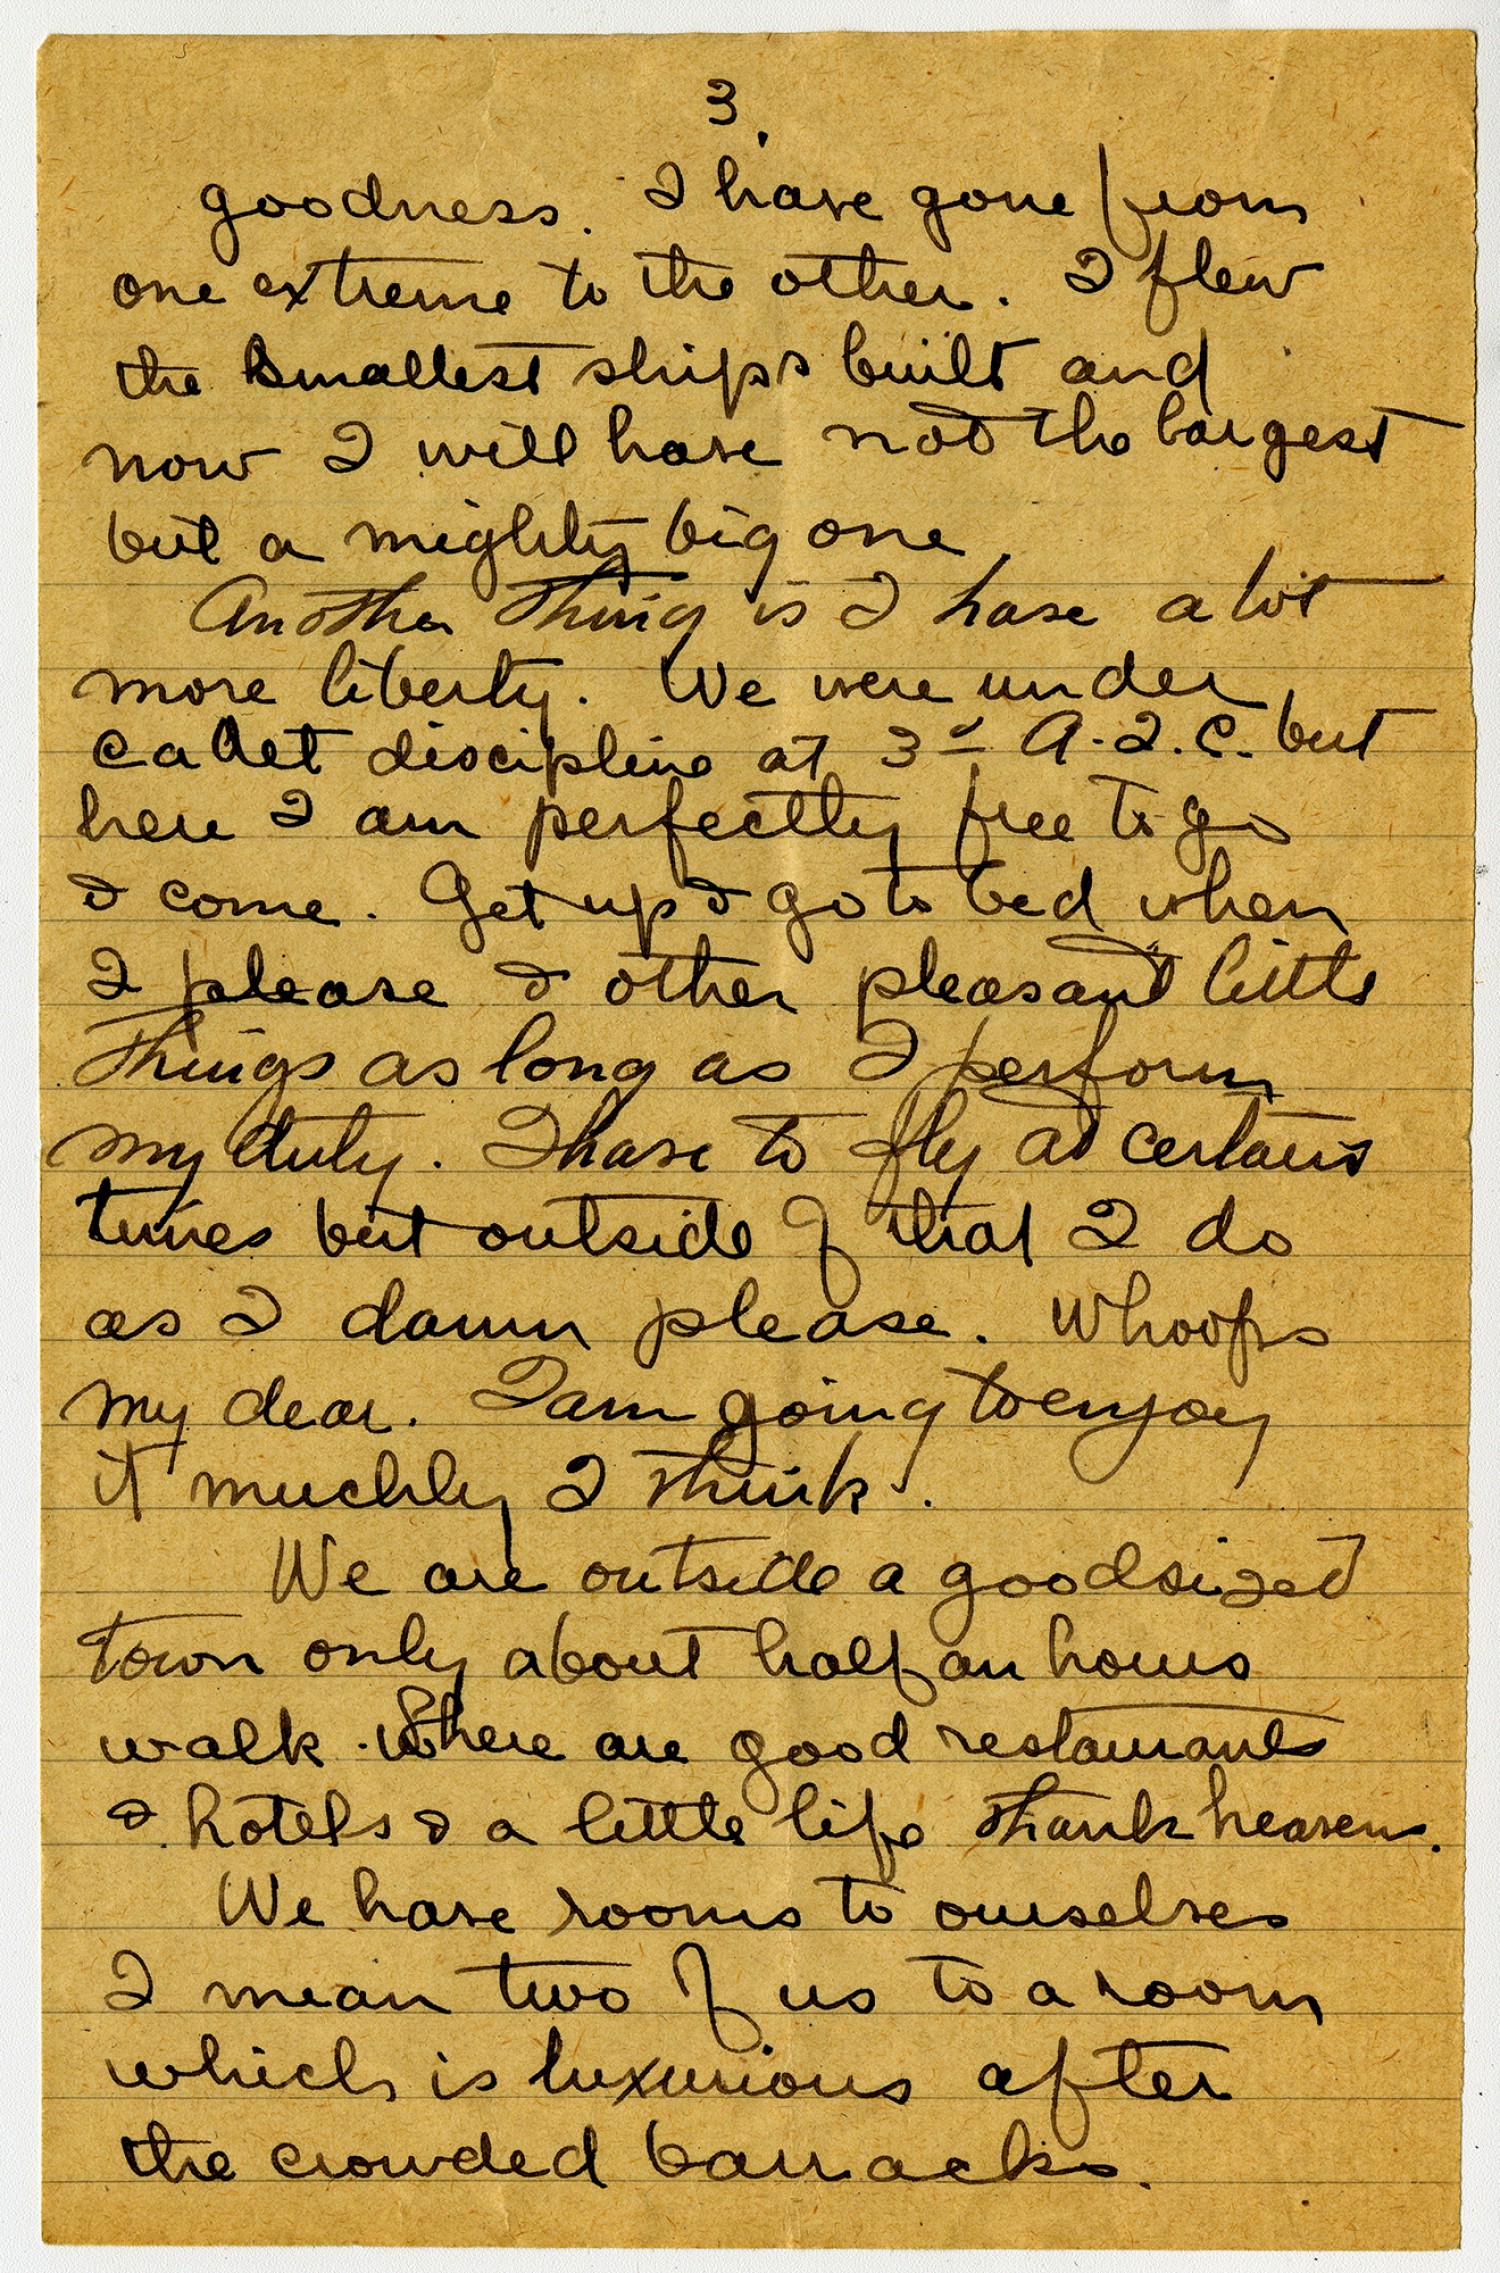 3.
goodness. I have gone from
one extreme to the other. I flew
the smallest ships built and
now I will have not the largest
but a mighty big one.
Another thing is I have a lot
more liberty. We were under
cadet discipline at 3d A.I.C. but
here I am perfectly free to go
& come. Get up & go to bed when
I please & other pleasant little
things as long as I perform
my duty. I have to fly at certain
times but outside of that I do
as I damn please. Whoops
my dear. I am going to enjoy
it muchly I think.
We are outside a good sized
town only about half an hours
walk. Where are good restaurants
& hotels & a little life thank heavens.
We have rooms to ourselves
I mean two of us to a room
which is luxurious after
the crowded barracks.